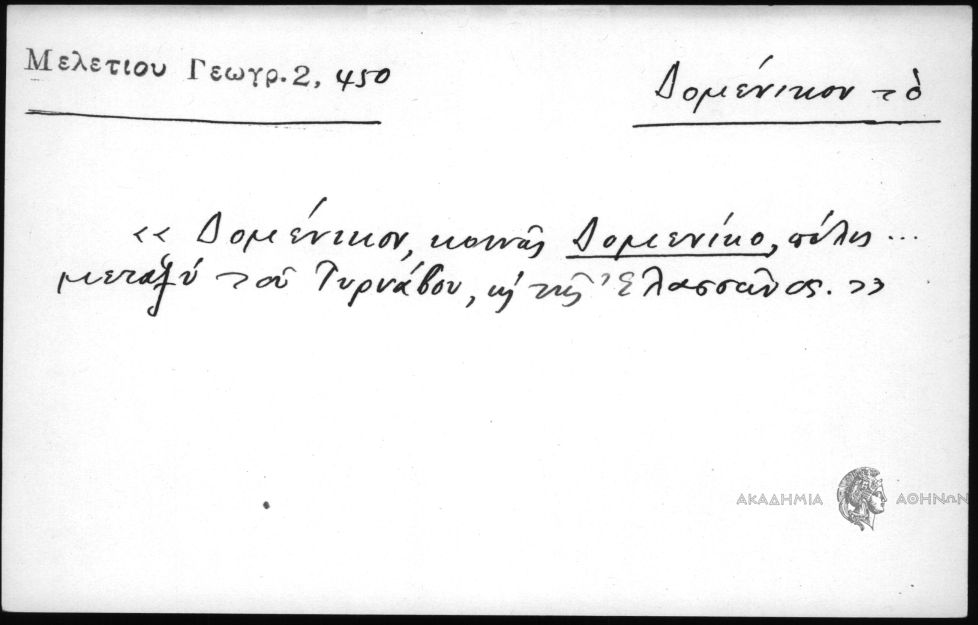 Μελετίου Γεωγρ. 2, 450
Δομένικον τὸ
«Δομένικον, κοινῶς Δομενίκο, πόλις ...
μεταξὺ τοῦ Τυρνάβου, κ̀ τῆς Ἐλασσῶνος.»
ΑΚΑΔΗΜΙΑ ΑΘΗΝΩΝ